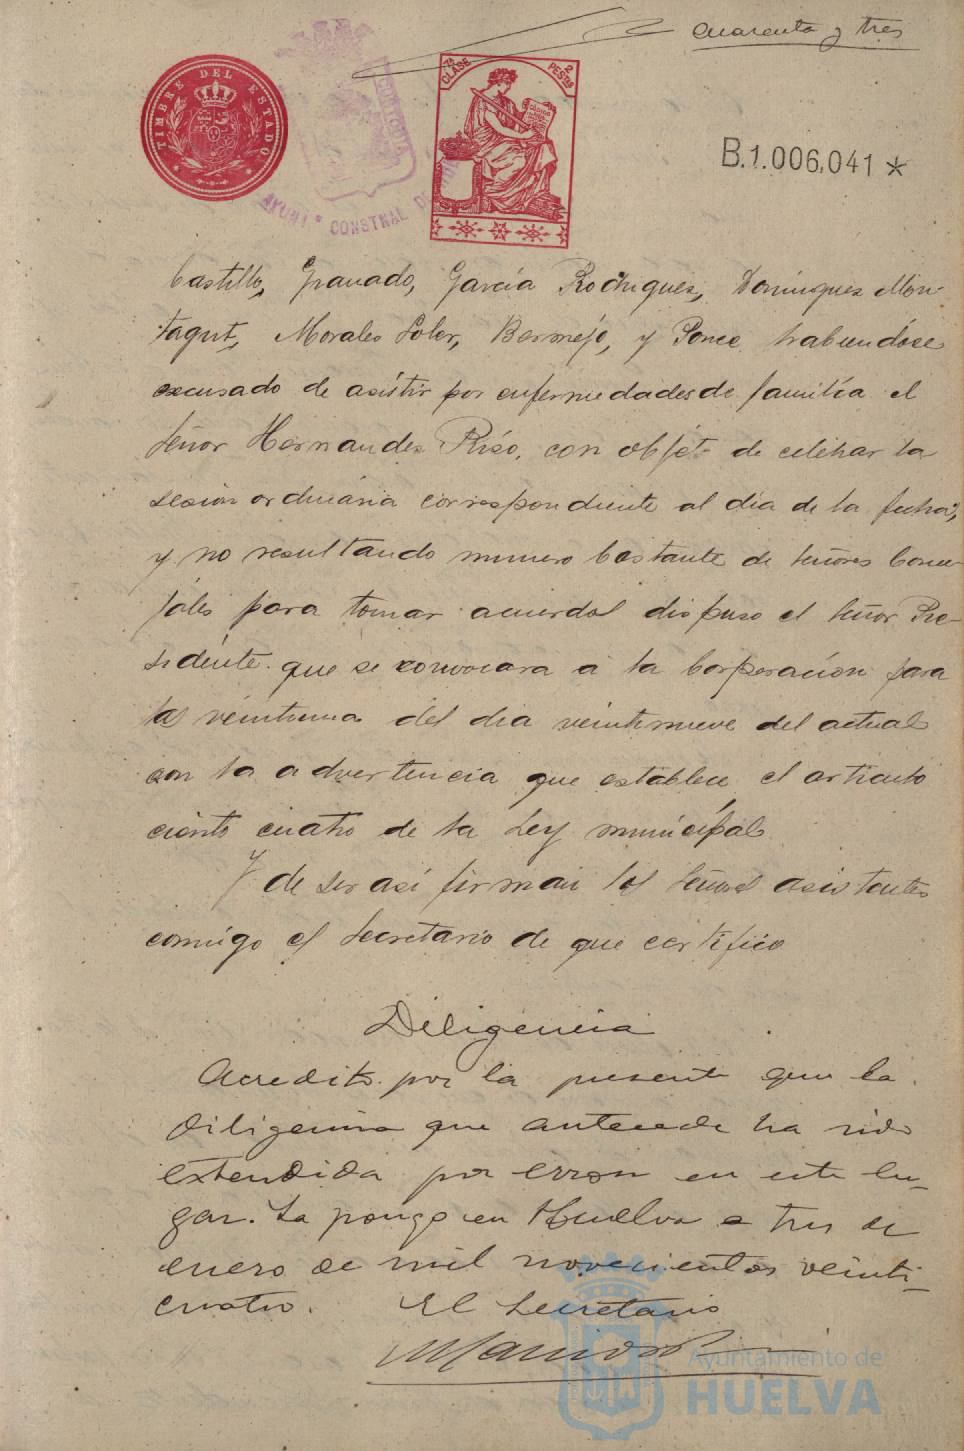 cuarenta y tres
TIMBRE DEL ESTADO
7ª CLASE 2 PESTAS
AYUNT CONSTNAL DE
B.1.006,041 *
Castillo, Granado, García Rodriguez, Dominguez Mon-
taqut, Morales Soler, Bermejo, y Ponce habiendose
excusado de asistir por enfermedades de familia el
Señor Hernandez Riso, con objeto de celebrar la
sesion ordinaria correspondiente al dia de la fecha,
y no resultando numero bastante de señores Conce-
jales para tomar acuerdos dispuso el Señor Pre-
sidente que se convocara a la Corporacion para
las veintiuna del dia veintinueve del actual
con la advertencia que establece el articulo
ciento cuatro de la Ley municipal
Y de ser asi firman los Señores asistentes
conmigo el Secretario de que certifico
Diligencia
Acredito por la presente que la
diligencia que antecede ha sido
extendida por error en este lu-
gar. La pongo en Huelva a tres de
enero de mil novecientos veinti-
cuatro. El Secretario
Ayuntamiento de
HUELVA